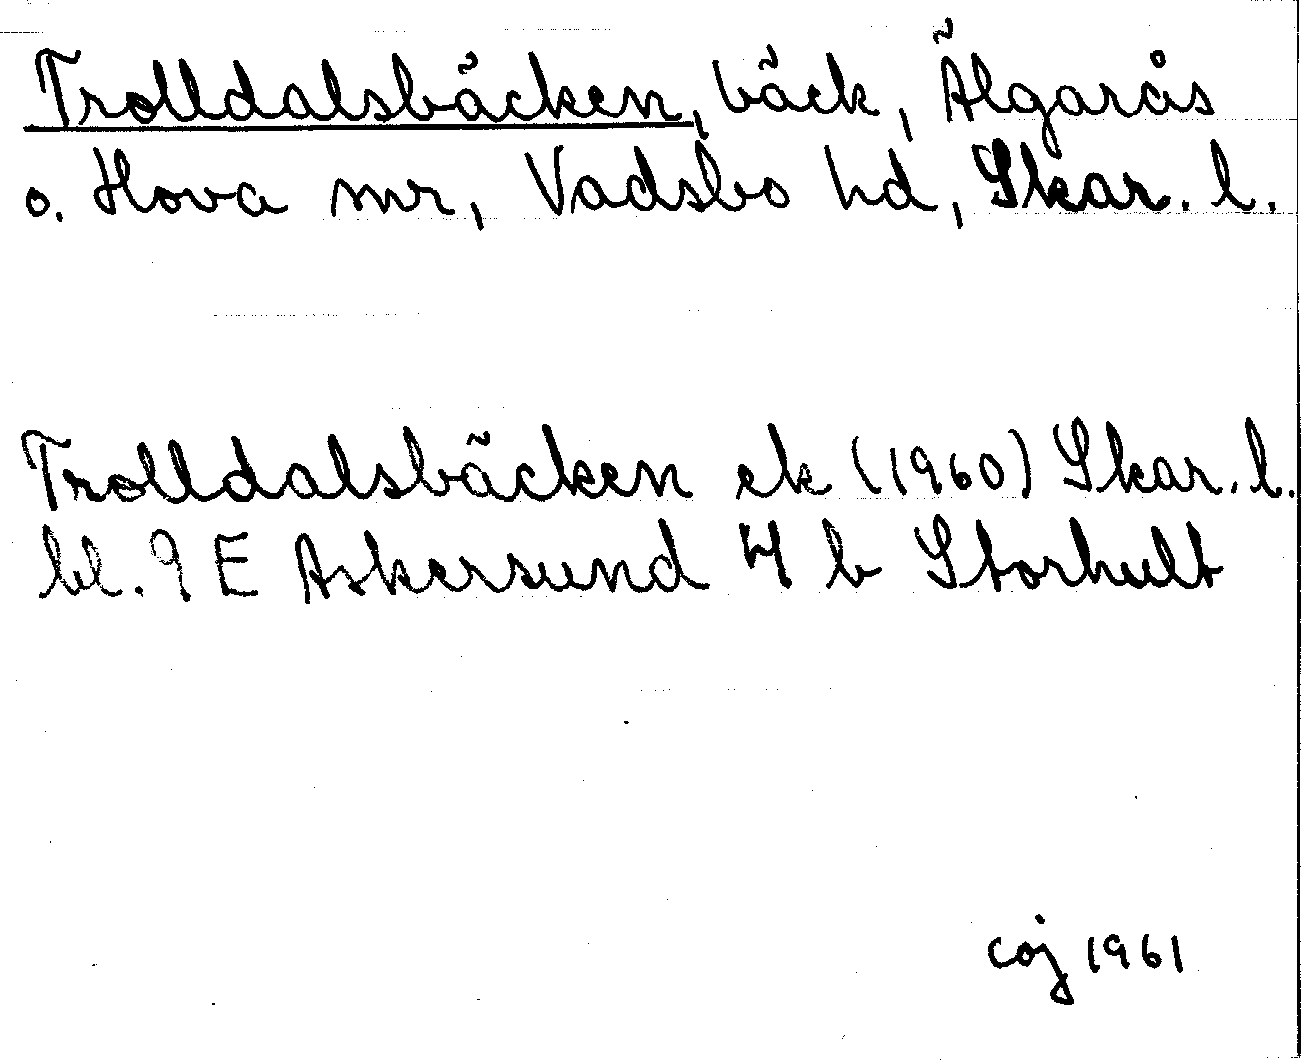 Trolldalsbäcken, bäck, Älgarås
o. Hova snr, Vadsbo hd, Skar. l.
Trolldalsbäcken ek (1960) Skar. l.
bl. 9 E Askersund 4 b Storhult
coj 1961